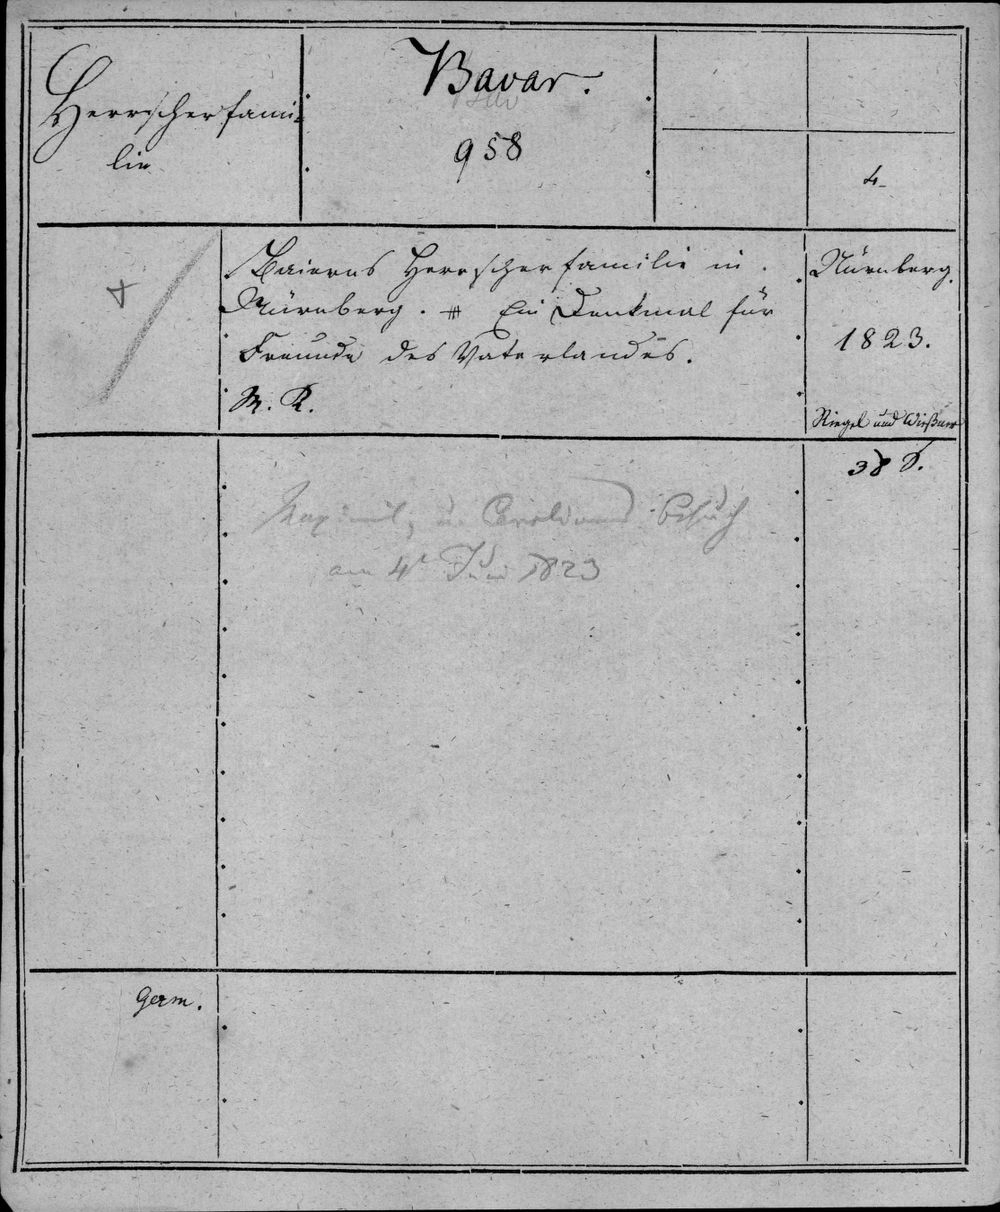 Herrscherfami-
lie
Bavar.
958
4.
+
Baierns Herrscherfamilie in
Nürnberg. # Ein Denkmal für
Freunde des Vaterlandes.
M. K.
Nürnberg.
1823.
Riegel und Wießner
38 S.
u. Besuch
am 4t Juni 1823
Germ.